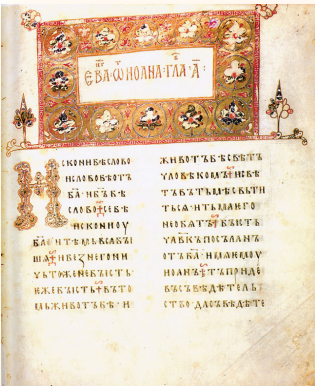 ЕВА · Ѿ ИОАНА · ГЛА · А҃ ·
ИСКОНИБѢСЛОВО
ИСЛОВОБѢОТЪ
БА҃ · ИБЪ҃БѢ
СЛОВО СЕБѢ
ИСКОНИОУ
БА҃ИТѢМЬВЬСѦБЫ
ШѦ ИБЕЗНЕГОНИ
ЧЬТОЖЕНЕБЫСТЬ
ИЖЕБЫСТЬ ВЪТО
МЬЖИВОТЪБѢ · И
ЖИВОТЪБѢСВѢТЪ
ЧЛОВѢКОМЪ ИСВѢ
ТЪВЪТЬМѢСВЬТИ
ТЬСѦ · ИТЬМАѤГО
НЕОБѦТЪ БЫСТЬ
ЧЛВ҃КЪПОСЪЛАНЪ
ОТЪБА҃ · ИМѦѤМОУ
ИОАНЪ ТЪПРИДЕ
ВЪСЪВѢДѢТЕЛЬ
СТВО · ДАСЪВѢДѢТЕ